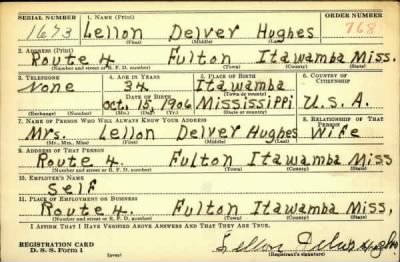 SERIAL NUMBER 1. NAME (Print) ORDER NUMBER
1673 Lellon Delver Hughes 768
(First) (Middle) (Last)
2. ADDRESS (Print)
Route 4. Fulton Itawamba Miss.
(Number and street or R. F. D. number) (Town) (County) (State)
3. TELEPHONE 4. AGE IN YEARS 5. PLACE OF BIRTH 6. COUNTRY OF CITIZENSHIP
None 34 Itawamba
DATE OF BIRTH (Town or county)
Oct. 15, 1906 Mississippi U.S.A.
(Exchange) (Number) (Mo.) (Day) (Yr.) (State or country)
7. NAME OF PERSON WHO WILL ALWAYS KNOW YOUR ADDRESS 8. RELATIONSHIP OF THAT PERSON
Mrs. Lellon Delver Hughes Wife
(Mr., Mrs., Miss) (First) (Middle) (Last)
9. ADDRESS OF THAT PERSON
Route 4. Fulton Itawamba Miss
(Number and street or R. F. D. number) (Town) (County) (State)
10. EMPLOYER'S NAME
Self
11. PLACE OF EMPLOYMENT OR BUSINESS
Route 4. Fulton Itawamba Miss.
(Number and street or R. F. D. number) (Town) (County) (State)
I AFFIRM THAT I HAVE VERIFIED ABOVE ANSWERS AND THAT THEY ARE TRUE.
REGISTRATION CARD
D. S. S. Form 1 (over) (Registrant's signature)
Lellon Delver Hughes